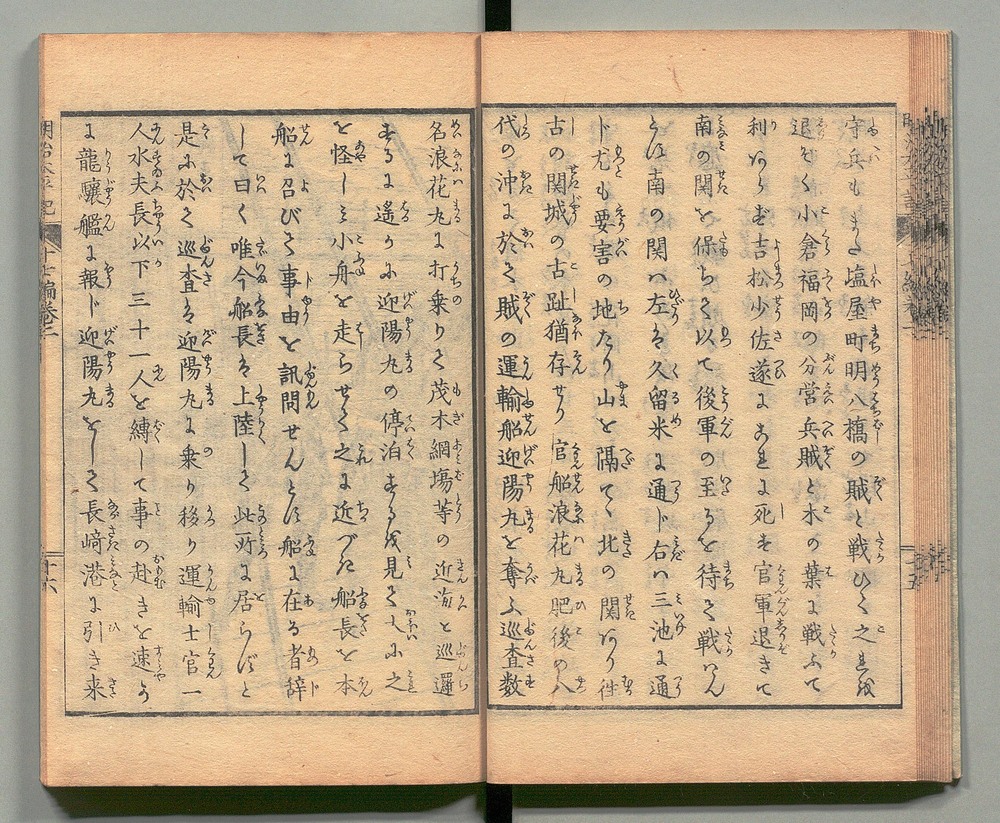 守兵もまた塩屋町明八橋の賊と戦ひて之を
退そく小倉福岡の分営兵賊と木の葉に戦ふて
利あらず吉松少佐遂にこれに死す官軍退きて
南の関を保ちて以て後軍の至るを待て戦はん
とす南の関ハ左を久留米に通ド右ハ三池に通
ド尤も要害の地たり山を隔てゝ北の関あり往
古の関城の古趾猶存せり官船浪花丸肥後の八
代の沖に於て賊の運輸船迎陽丸を奪ふ巡査数
名浪花丸に打乗りて茂木網場等の近海を巡邏
するに遙かに迎陽丸の停泊するを見て大に之
を怪しミ小舟を走らせて之に近づき船長を本
船に召びて事由を訊問せんとす船に在る者辞
して曰く唯今船長を上陸して此所に居らずと
是に於て巡査を迎陽丸に乗り移り運輸士官一
人水夫長以下三十一人を縛して事の赴きを速
に龍驤艦に報ド迎陽丸をして長﨑港に引き来
明治太平記
十七編巻二
十六
十五